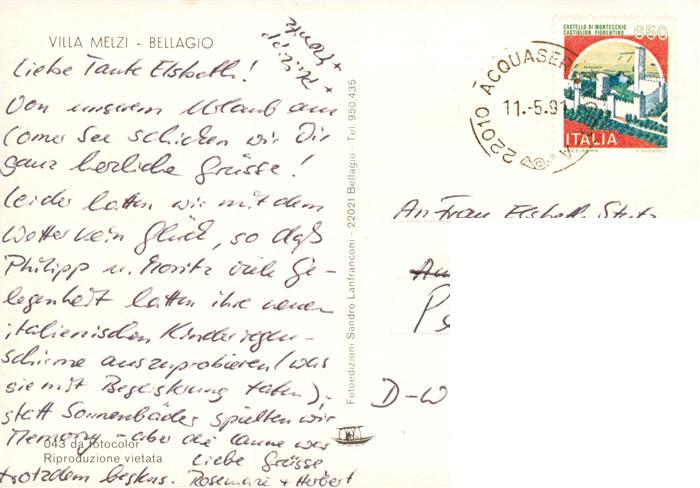 VILLA MELZI - BELLAGIO
Liebe Tante Elsbeth!
Von unserem Urlaub am
Comer See schicken wir Dir
ganz herzliche Grüsse!
Leider hatten wir mit dem
Wetter kein Glück, so daß
Philipp u. Moritz viele Ge-
legenheit hatten ihre neuen
italienischen Kinderregen-
schirme auszuprobieren (was
sie mit Begeisterung taten),
statt Sonnenbäder spielten wir
Memory - aber die Laune war
trotzdem bestens.
Liebe Grüsse
Rosemarie + Herbert
+ Philipp
+ Moritz
043 da fotocolor
Riproduzione vietata
Fotoedizioni Sandro Lanfranconi - 22021 Bellagio - Tel. 950.435
22010 ACQUASER
11.-5.91
CASTELLO DI MONTECCHIO
CASTIGLION FIORENTINO
650
ITALIA
An Frau Elsbeth
D-W